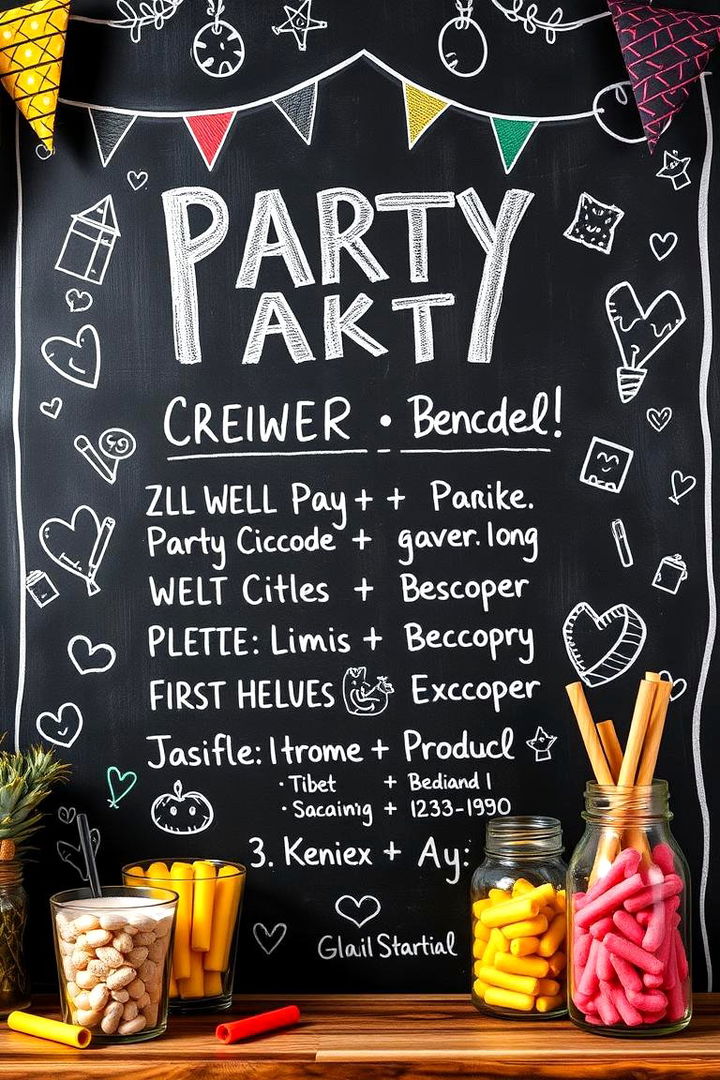 PARTY
AKT
CREIWER • Bencdel!
ZLL WELL Pay + + Panike.
Party Ciccode + gaver. long
WELT Citles + Bescoper
PLETTE: Limis + Beccopry
FIRST HELVES Exccoper
Jasifle: Itrome + Producl
• Tibet + Bediand l
• Sacaining + 1233-1990
3. Keniex + Ay:
Glail Startial